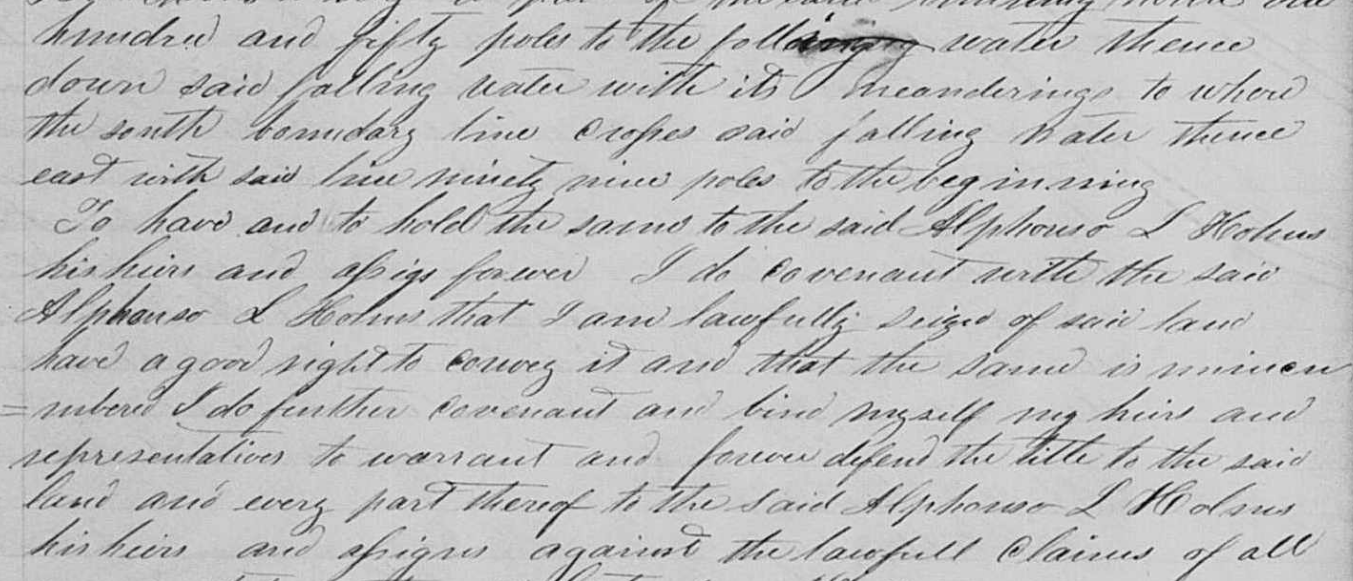 hundred and fifty poles to the falling water thence
down said falling water with its meanderings to where
the south boundary line crosses said falling water thence
east with said line ninety nine poles to the beginning
To have and to hold the same to the said Alphonso L Holms
his heirs and assigs forever I do covenant with the said
Alphonso L Holms that I am lawfully seized of said land
have a good right to convey it and that the same is unincu
=mbered I do further covenant and bind myself my heirs and
representatives to warrant and forever defend the title to the said
land and every part thereof to the said Alphonso L Holms
his heirs and assigns against the lawfull claims of all